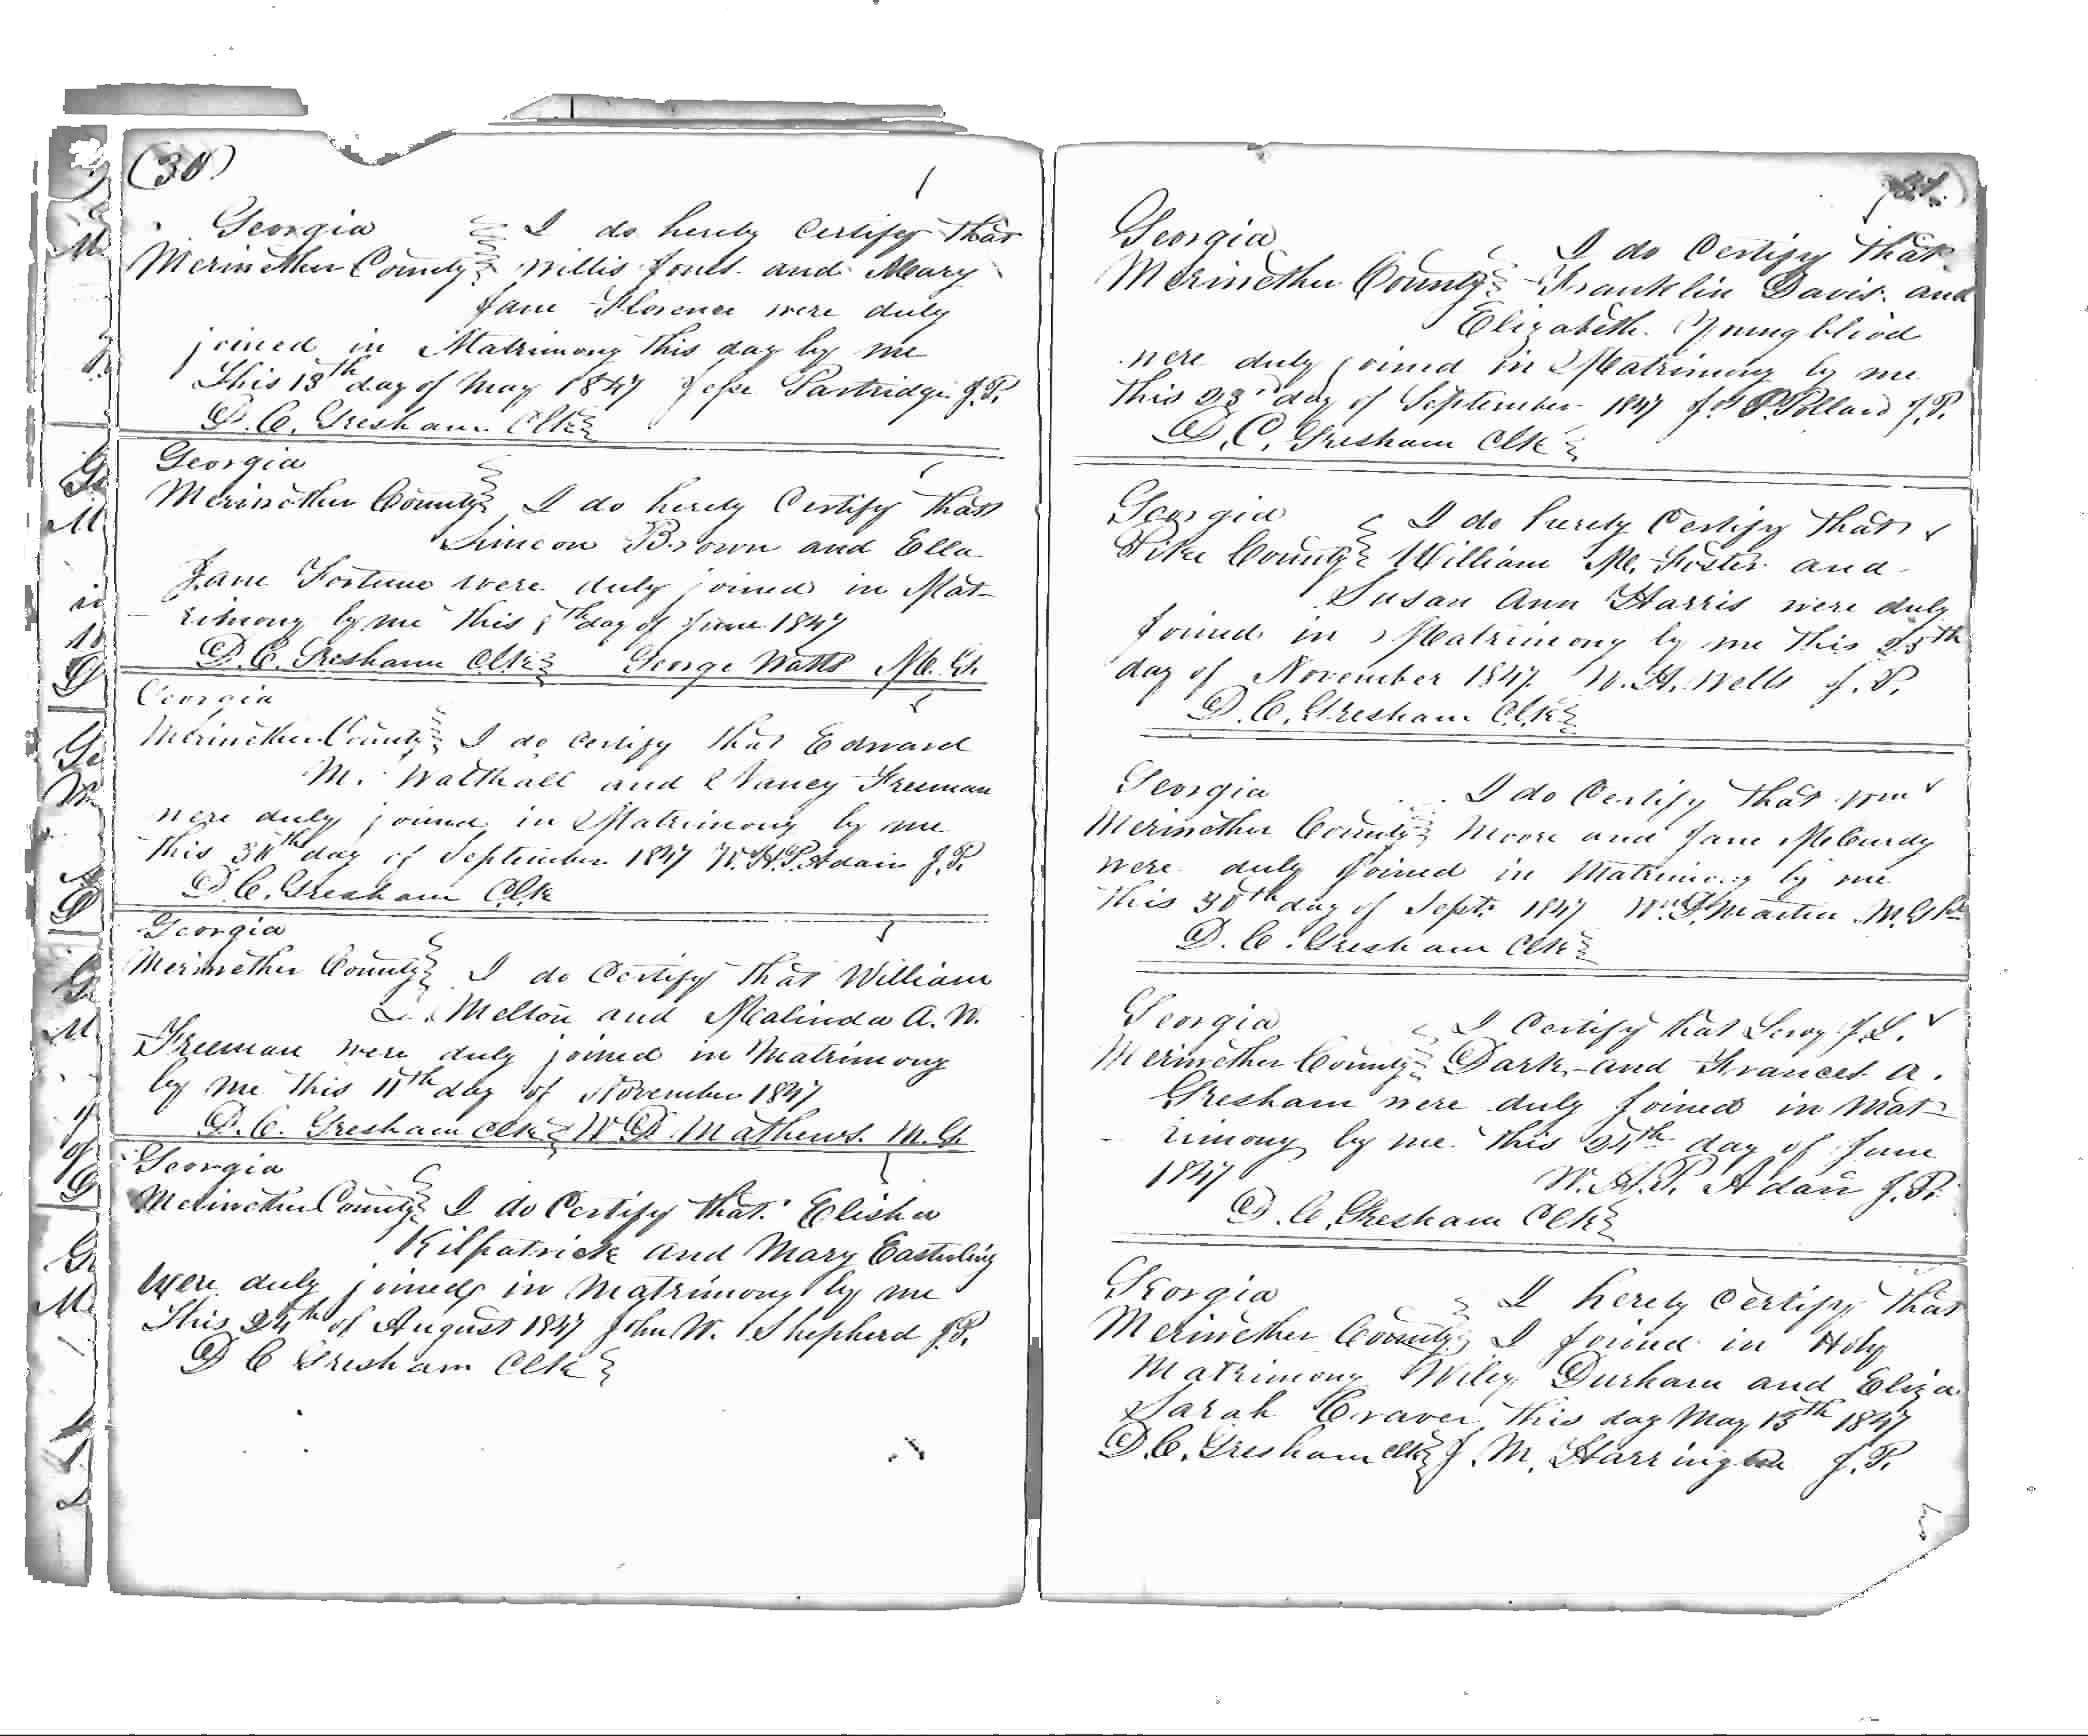 (30)
Georgia I do hereby Certify that
Meriwether County Willis Jones and Mary
Jane Florence were duly
joined in Matrimony this day by me
This 13th day of May 1847 Jesse Partridge J.P.
D. C. Gresham Clk
Georgia
Meriwether County I do hereby Certify that
Simeon Brown and Ella
Jane Fortune were duly joined in Mat-
rimony by me this 8th day of June 1847
D. C. Gresham Clk George Watts M. G.
Georgia
Meriwether County I do certify that Edward
M. Walthall and Nancy Freeman
were duly joined in Matrimony by me
this 30th day of September 1847 W. H. P. Adair J.P.
D. C. Gresham Clk
Georgia
Meriwether County I do Certify that William
L. Melton and Malinda A. W.
Freeman were duly joined in Matrimony
by me this 11th day of November 1847
D. C. Gresham Clk W D Mathews M. G.
Georgia
Meriwether County I do Certify that Elisha
Kilpatrick and Mary Easterling
were duly joined in Matrimony by me
This 24th of August 1847 John W. Shepherd J.P.
D C Gresham Clk
31
Georgia I do Certify that
Meriwether County Franklin Davis and
Elizabeth Youngblood
were duly joined in Matrimony by me
this 23rd day of September 1847 P. Pollard J.P.
D. C. Gresham Clk
Georgia I do hereby Certify that
Pike County William M. Foster and
Susan Ann Harris were duly
joined in Matrimony by me this 25th
day of November 1847. W. H. Wells J. P.
D. C. Gresham Clk
Georgia I do Certify that Wm
Meriwether County Moore and Jane McCurdy
were duly joined in Matrimony by me
this 30th day of Sept. 1847 Martin M. G.
D. C. Gresham Clk
Georgia I Certify that Leroy J. L.
Meriwether County Dark and Frances A.
Gresham were duly joined in Mat-
rimony by me this 24th day of June
1847 W. H. P. Adair J. P.
D. C. Gresham Clk
Georgia I hereby Certify that
Meriwether County I joined in Holy
Matrimony Wiley Durham and Eliza
Sarah Craver this day May 13th 1847
D. C. Gresham Clk J. M. Harrington J. P.